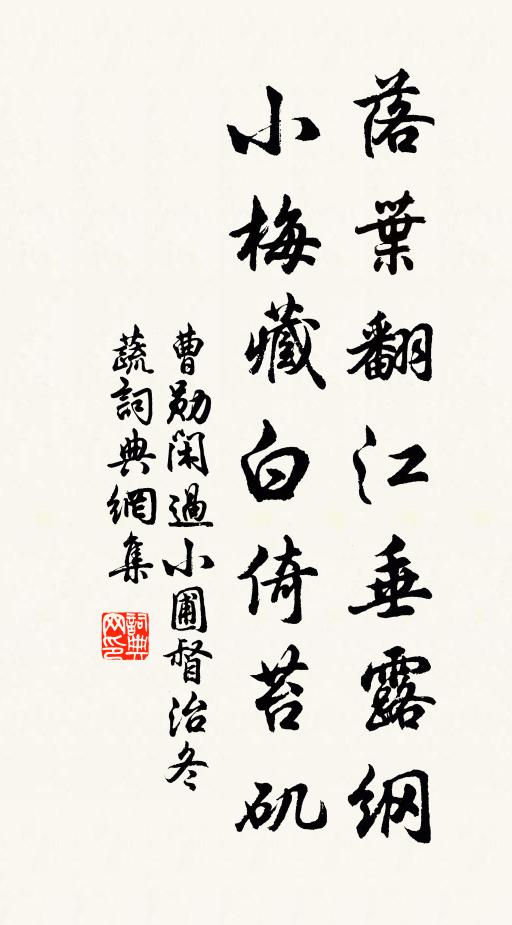 落葉翻江垂露網
小梅藏白倚苔矶
曹勛闲過小圃督治冬
蔬詞典網集
詞典网印